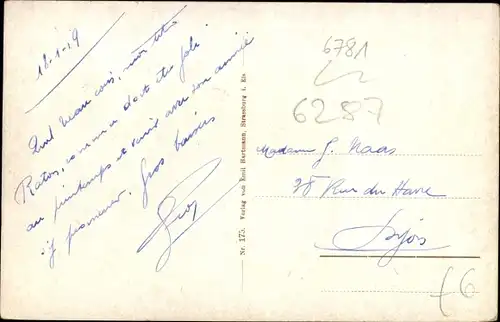 18-1-19
beau coin, mon
Raton, comme ce doit être joli
au printemps et venir avec son amie
s'y promener. Gros baisers
Nr. 175. Verlag von Emil Hartmann, Strassburg i. Els.
6781
6287
Madame G. Haas
38 Rue du Havre
Dijon
f6